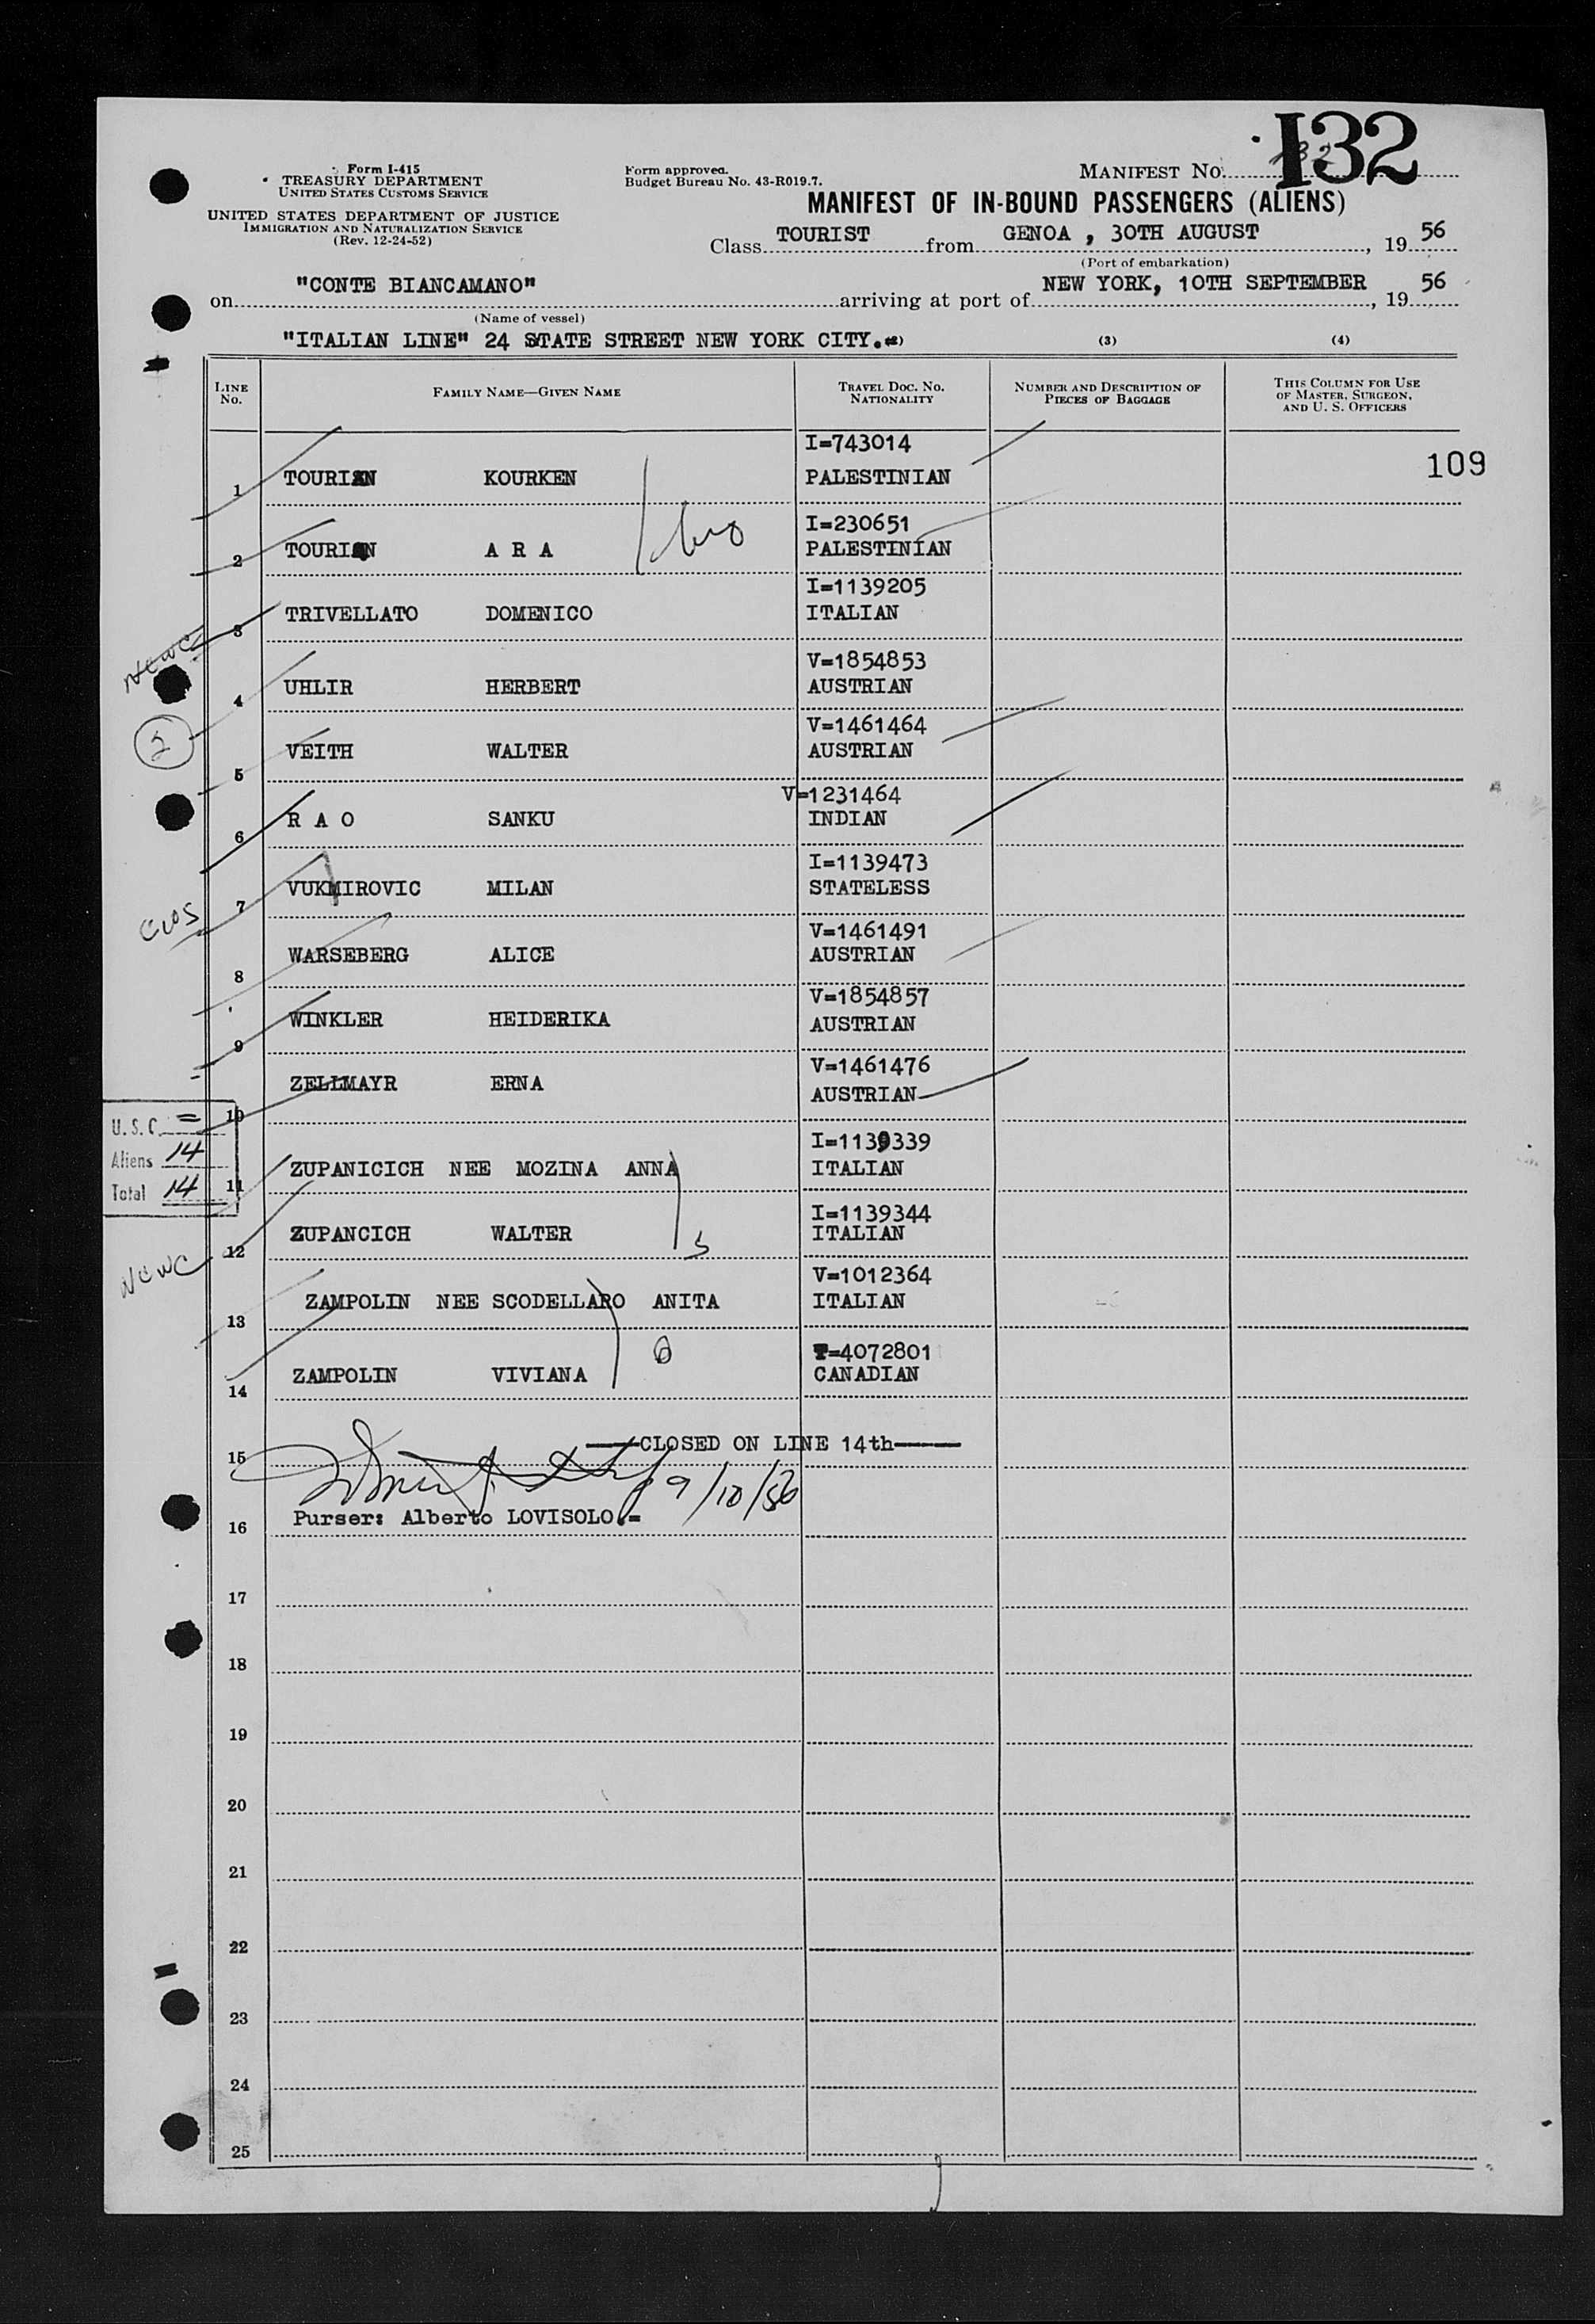 132
Form I-415
TREASURY DEPARTMENT
UNITED STATES CUSTOMS SERVICE
UNITED STATES DEPARTMENT OF JUSTICE
IMMIGRATION AND NATURALIZATION SERVICE
(Rev. 12-24-52)
Form approved.
Budget Bureau No. 43-R019.7.
MANIFEST No. 132
MANIFEST OF IN-BOUND PASSENGERS (ALIENS)
Class TOURIST from GENOA , 30TH AUGUST , 19 56
(Port of embarkation)
on "CONTE BIANCAMANO" arriving at port of NEW YORK, 10TH SEPTEMBER , 19 56
(Name of vessel)
"ITALIAN LINE" 24 STATE STREET NEW YORK CITY. (3) (4)
LINE No. FAMILY NAME—GIVEN NAME TRAVEL DOC. No. NATIONALITY NUMBER AND DESCRIPTION OF PIECES OF BAGGAGE THIS COLUMN FOR USE OF MASTER, SURGEON, AND U. S. OFFICERS
109
I=743014
1 TOURIAN KOURKEN PALESTINIAN
I=230651
2 TOURIAN A R A PALESTINIAN
I=1139205
3 TRIVELLATO DOMENICO ITALIAN
NCWC
V=1854853
4 UHLIR HERBERT AUSTRIAN
2
V=1461464
5 VEITH WALTER AUSTRIAN
V=1231464
6 R A O SANKU INDIAN
I=1139473
7 VUKMIROVIC MILAN STATELESS
CWS
V=1461491
8 WARSEBERG ALICE AUSTRIAN
V=1854857
9 WINKLER HEIDERIKA AUSTRIAN
V=1461476
10 ZELLMAYR ERNA AUSTRIAN
U.S.C. =
Aliens 14
Total 14
I=1139339
11 ZUPANICICH NEE MOZINA ANNA ITALIAN
I=1139344
12 ZUPANCICH WALTER ITALIAN
NCWC
V=1012364
13 ZAMPOLIN NEE SCODELLARO ANITA ITALIAN
T=4072801
14 ZAMPOLIN VIVIANA CANADIAN
15 ———CLOSED ON LINE 14th———
9/10/56
16 Purser: Alberto LOVISOLO.=
17
18
19
20
21
22
23
24
25